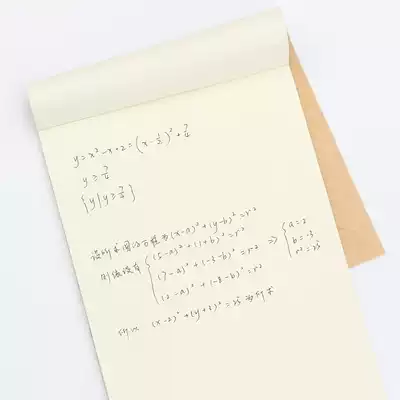 y=x²-x+2=(x-1/2)²+7/4
y≥7/4
{y|y≥7/4}
设所求圆的方程为(x-a)²+(y-b)²=r²
则依设有{(5-a)²+(1-b)²=r²
(7-a)²+(-3-b)²=r²
(2-a)²+(-8-b)²=r²
⇒{a=2
b=-3
r²=25
所以 (x-2)²+(y+3)²=25为所求